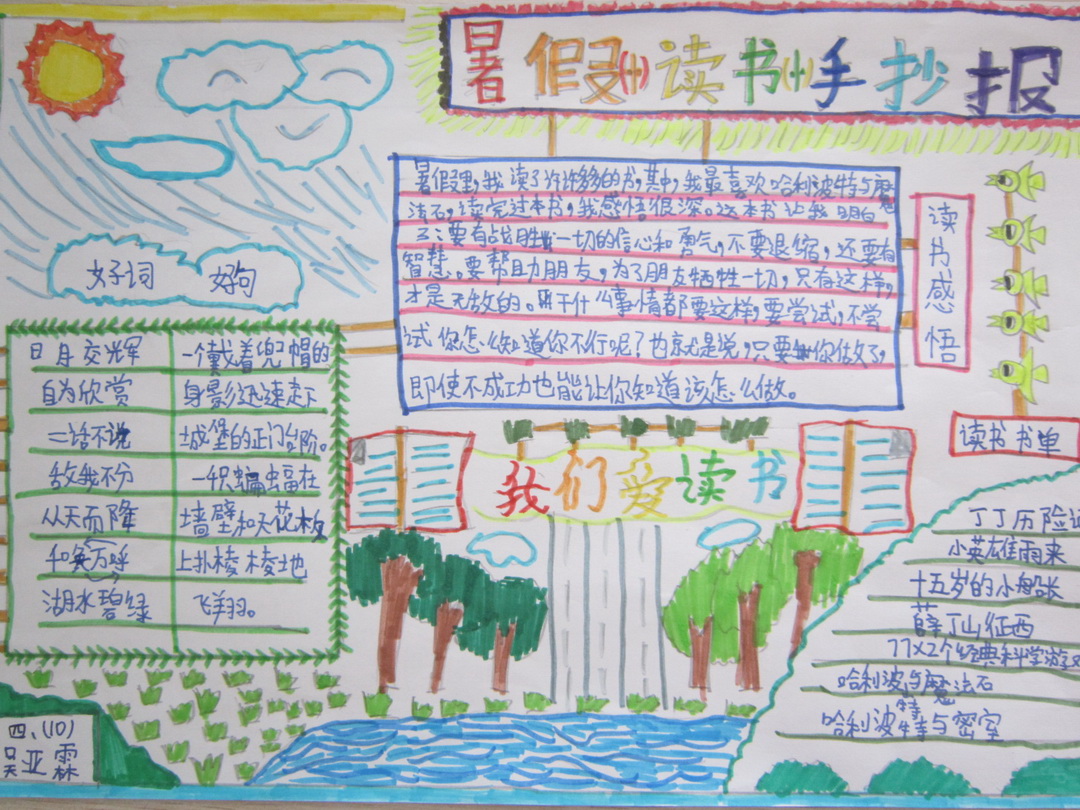 暑假读书手抄报
暑假里,我读了许许多多的书,其中,我最喜欢哈利波特与魔
法石,读完过本书,我感悟很深。这本书让我明白
了:要有战胜一切的信心和勇气,不要退缩,还要有
智慧。要帮助朋友,为了朋友牺牲一切,只有这样,
才是无敌的。干什么事情都要这样,要尝试,不尝
试你怎么知道你不行呢?也就是说,只要你做了,
即使不成功也能让你知道该怎么做。
读书感悟
好词 好句
日月交辉
自为欣赏
二话不说
敌我不分
从天而降
和万呼
湖水碧绿
一个戴着兜帽的
身影迅速走下
城堡的正门台阶。
一只蝙蝠在
墙壁和天花板
上扑棱棱地
飞翔。
我们爱读书
读书书单
丁丁历险记
小英雄雨来
十五岁的小船长
薛丁山征西
77×2个经典科学游戏
哈利波特与魔法石
哈利波特与密室
四、(10)
吴亚霖